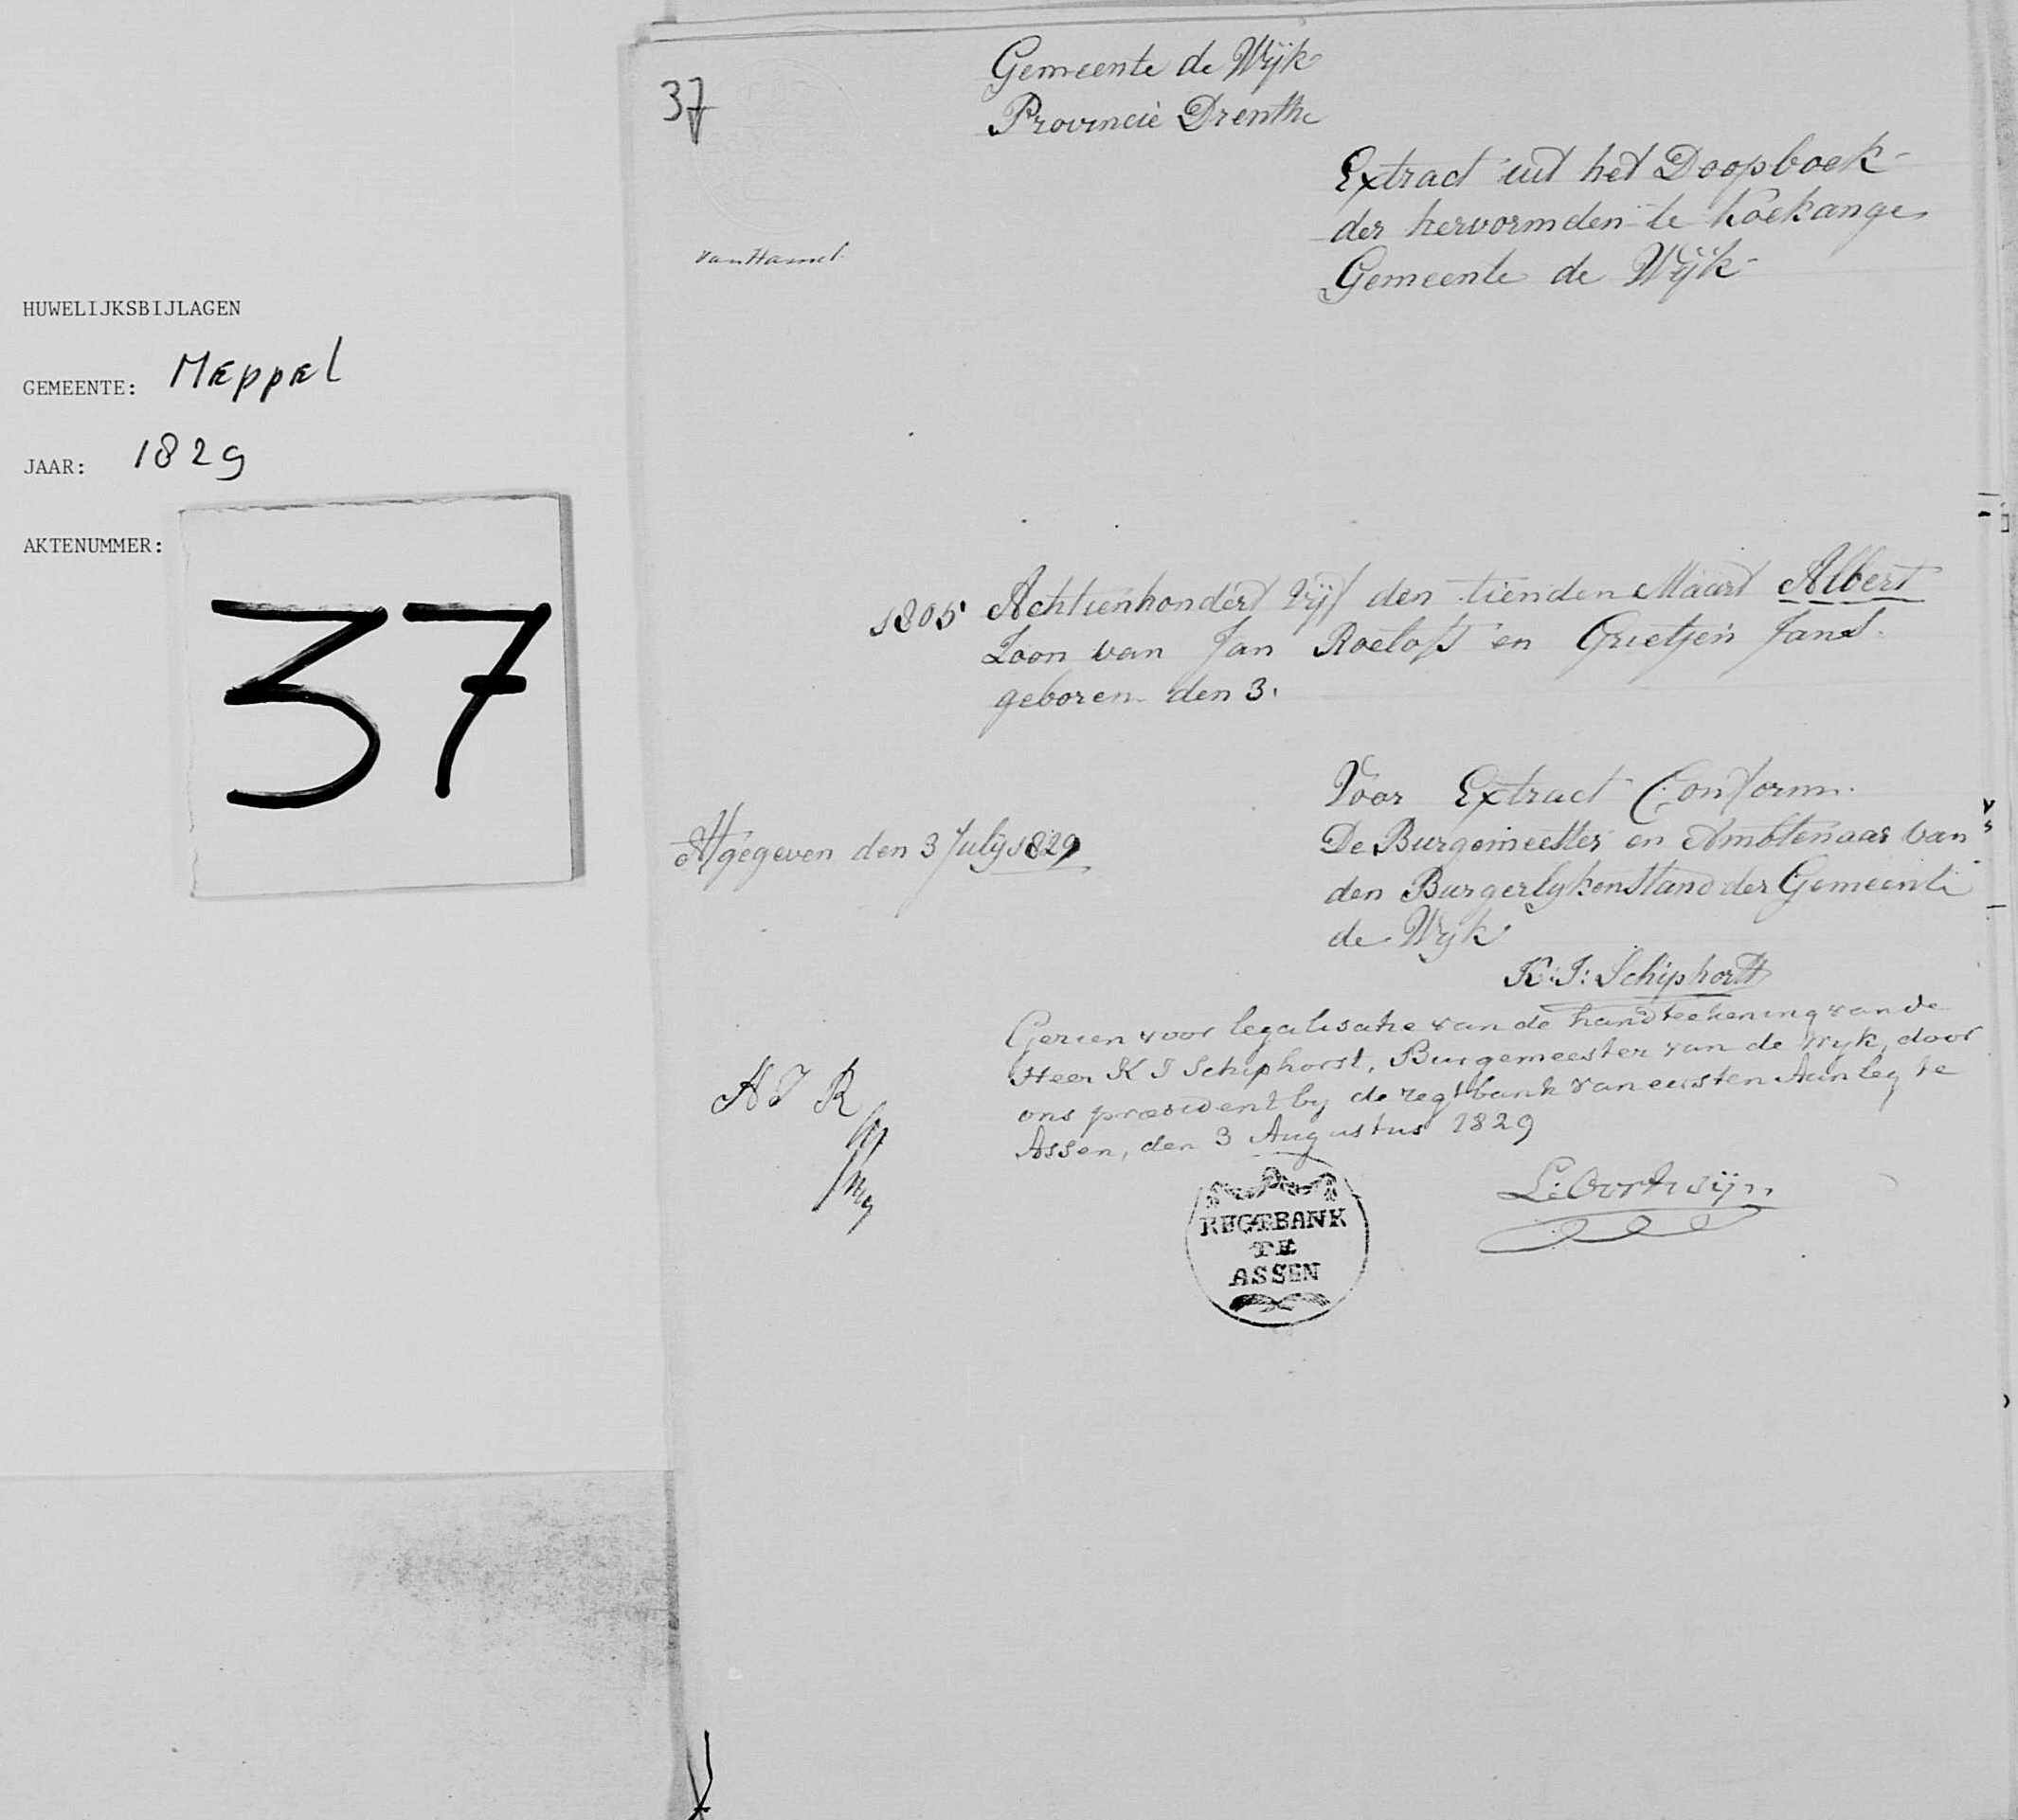 HUWELIJKSBIJLAGEN
GEMEENTE: Meppel
JAAR: 1829
AKTENUMMER:
37
37
Gemeente de Wijk
Provincie Drenthe
Extract uit het Doopboek
der hervormden te Koekange
Gemeente de Wijk
van Hamel
1805 Achtienhondert Vijf den tienden Maart Albert
Zoon van Jan Roelofs en Grietjen Jans.
geboren den 3.
Voor Extract Conform.
De Burgemeester en Ambtenaar van
den Burgerlyken Stand der Gemeente
de Wyk
K: J: Schiphorst
Afgegeven den 3 July 1829
Gezien voor legalisatie van de handteekening van de
Heer K J Schiphorst, Burgemeester van de Wyk, door
ons president by de regtbank van eersten Aanleg te
Assen, den 3 Augustus 1829
A J R
L: Oorthuijn
REGTBANK
TE
ASSEN